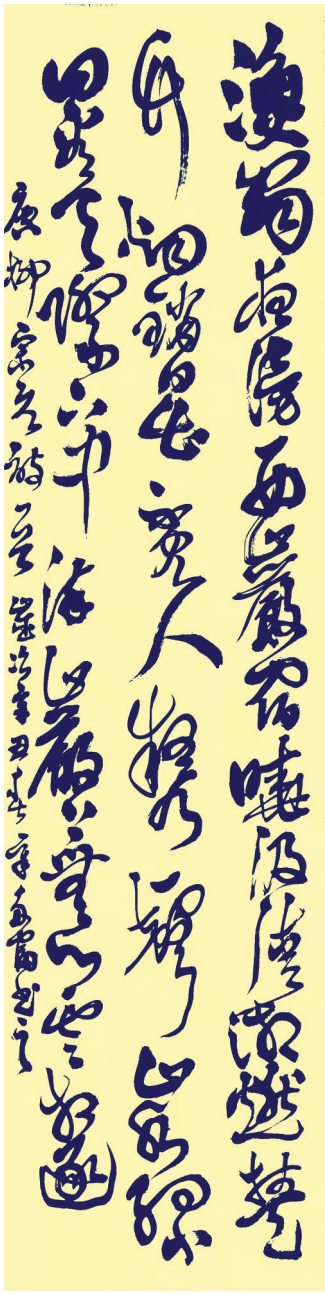 漁翁夜傍西巖宿曉汲清湘燃楚
竹烟銷日出不見人欸乃一聲山水綠
回看天際下中流巖上無心雲相逐
唐柳宗元詩一首歲次辛丑春書之